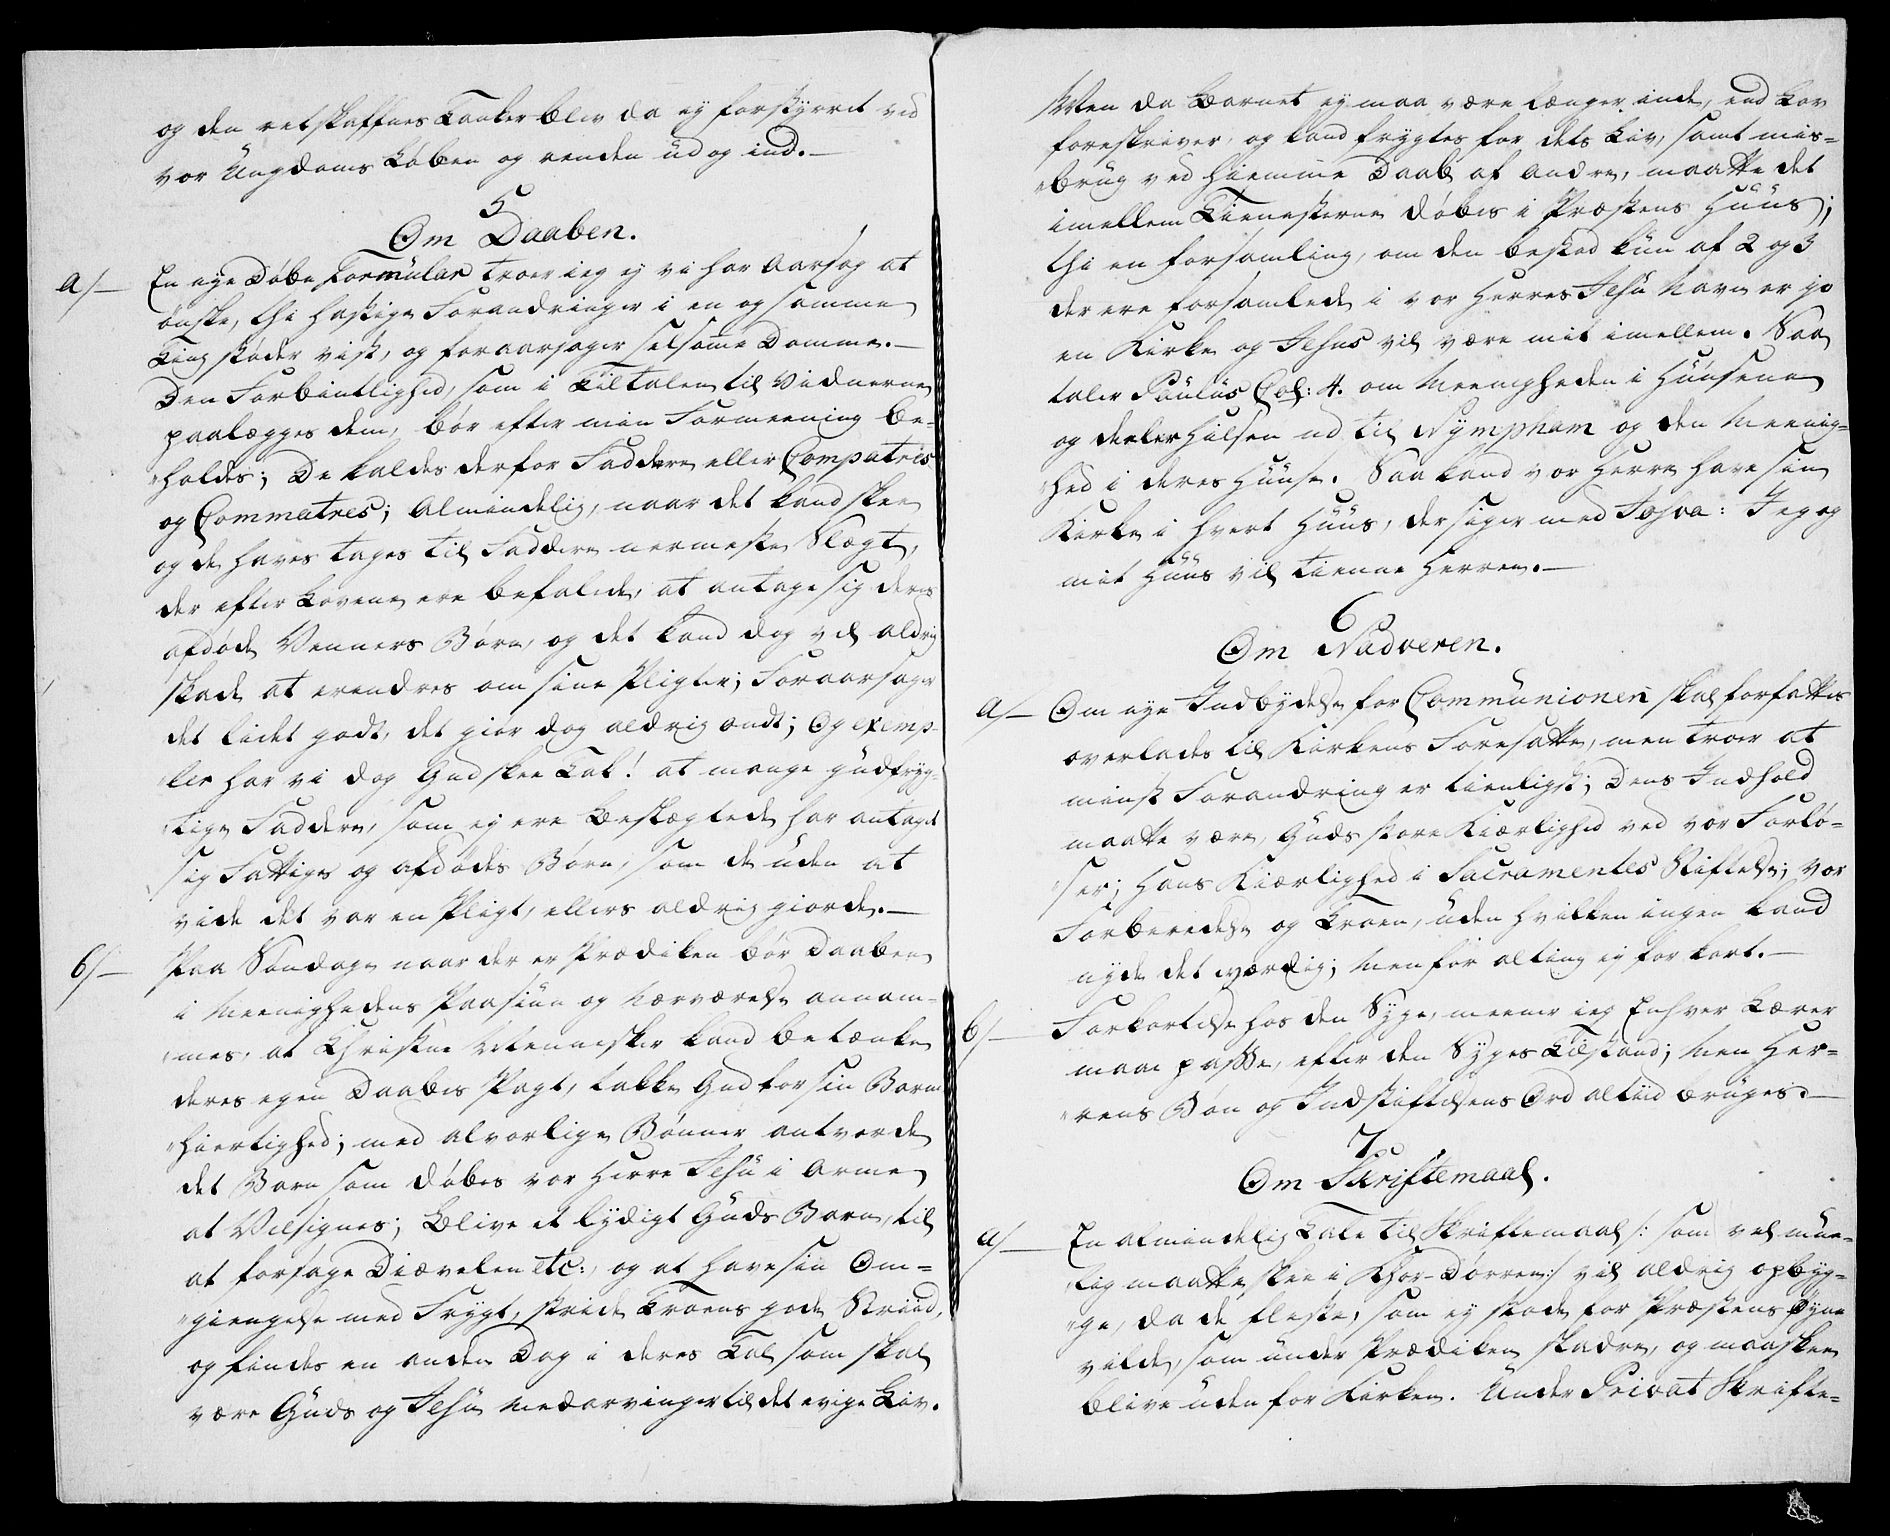 og den retskaffnes Tanker blev da ej forstyrret ved
vor Ungdoms Løben og renden ud og ind.—
5
Om Daaben.
a/— En nye Døbe Formular troer ieg ej vi har Aarsag at
ønske, thi hastige Forandringer i en og samme
Ting støder vist, og foraarsager selsomme Domme.—
Den Forbintlighed, som i Tiltalen til Vidnerne
paalægges dem, bør efter min Formeening be-
holdes; De kaldes derfor Faddere eller Compatres
og Commatres; Almindelig, naar det kand skee
og de haves tages til Faddere nermeste Slægt,
der efter Lovene ere befalede, at antage sig deres
afdøde Venners Børn, og det kand dog vel aldrig
skade at erindres om sine Pligter; Foraarsager
det lidet godt, det giør dog aldrig ondt; Og exemp-
ler har vi dog Gud skee Lov! at mange gudfryg-
tige Faddere, som ej ere Beslægtede har antaget
sig Fattiges og afdødes Børn, som de uden at
vide det var en Pligt, ellers aldrig giorde.—
b/— Paa Søndage naar der er Prædiken bør Daaben
i Meenighedens Paasiun og Nærværelse annam-
mes, at Christne Mennesker kand betænke
deres egen Daabes Pagt, takke Gud for sin Barm
hiertighed; med alvorlige Bønner antvorde
det Barn som døbes vor Herre Jesu i Arme
at Velsignes; Blive et lydigt Guds Barn, til
at forsage Diævelen etc:, og at have sin Om-
giengelse med Frygt, stride Troens gode Striid,
og findes en anden Dag i deres Tal som skal
være Guds og Jesu Medarvinger til det evige Liv.
Men da Barnet ej maa være længer inde, end Lov
foreskriver, og kand frygtes for dets Liv, samt mis-
brug ved hiemme Daab af andre, maatte det
imellem Tienesterne døbes i Præstens Huus;
thi en forsamling, om den bestod kun af 2 og 3
der ere forsamlede i vor Herres Jesu Navn er jo
en Kirke og Jesus vil være mit imellem. Saa
taler Paulus Col: 4. om Meenigheden i Huusene
og deeler Hilsen ud til Nympham og den Meenig-
hed i deres Huuse. Saa kand vor Herre have sin
Kirke i hvert Huus, der siger med Josva: Jeg og
mit Huus vil tienne Herren.—
6
Om Nadveren.
a/— Om nye Indbydelse for Communionen skal forfattes
overlades til Kirkens Foresatte, men troer at
minst Forandring er tienligst; Dens Indhold
maatte være, Guds store Kiærlighed ved vor Forlø-
ser; Hans Kiærlighed i Sacramentes Stiftelse; vor
Forberedelse og Troen, uden hvilken ingen kand
nyde det værdig; Men for alting ej for kort.—
b/— Forkortelse hos den Syge, meener ieg Enhver Lærer
maae passe, efter den Syges Tilstand; Men Her-
rens Bøn og Indstiftelsens Ord altiid bruges.—
7.
Om Skriftemaal.
a/— En almindelig Tale til Skriftemaal /: som vel mue-
lig maatte skee i Chor-Dørren:/ vil aldrig opbyg-
ge, da de fleste, som ej stode for Præstens Øyne
vilde, som under Prædiken spadre, og maaskee
blive uden for Kirken. Under Privat Skrifte-